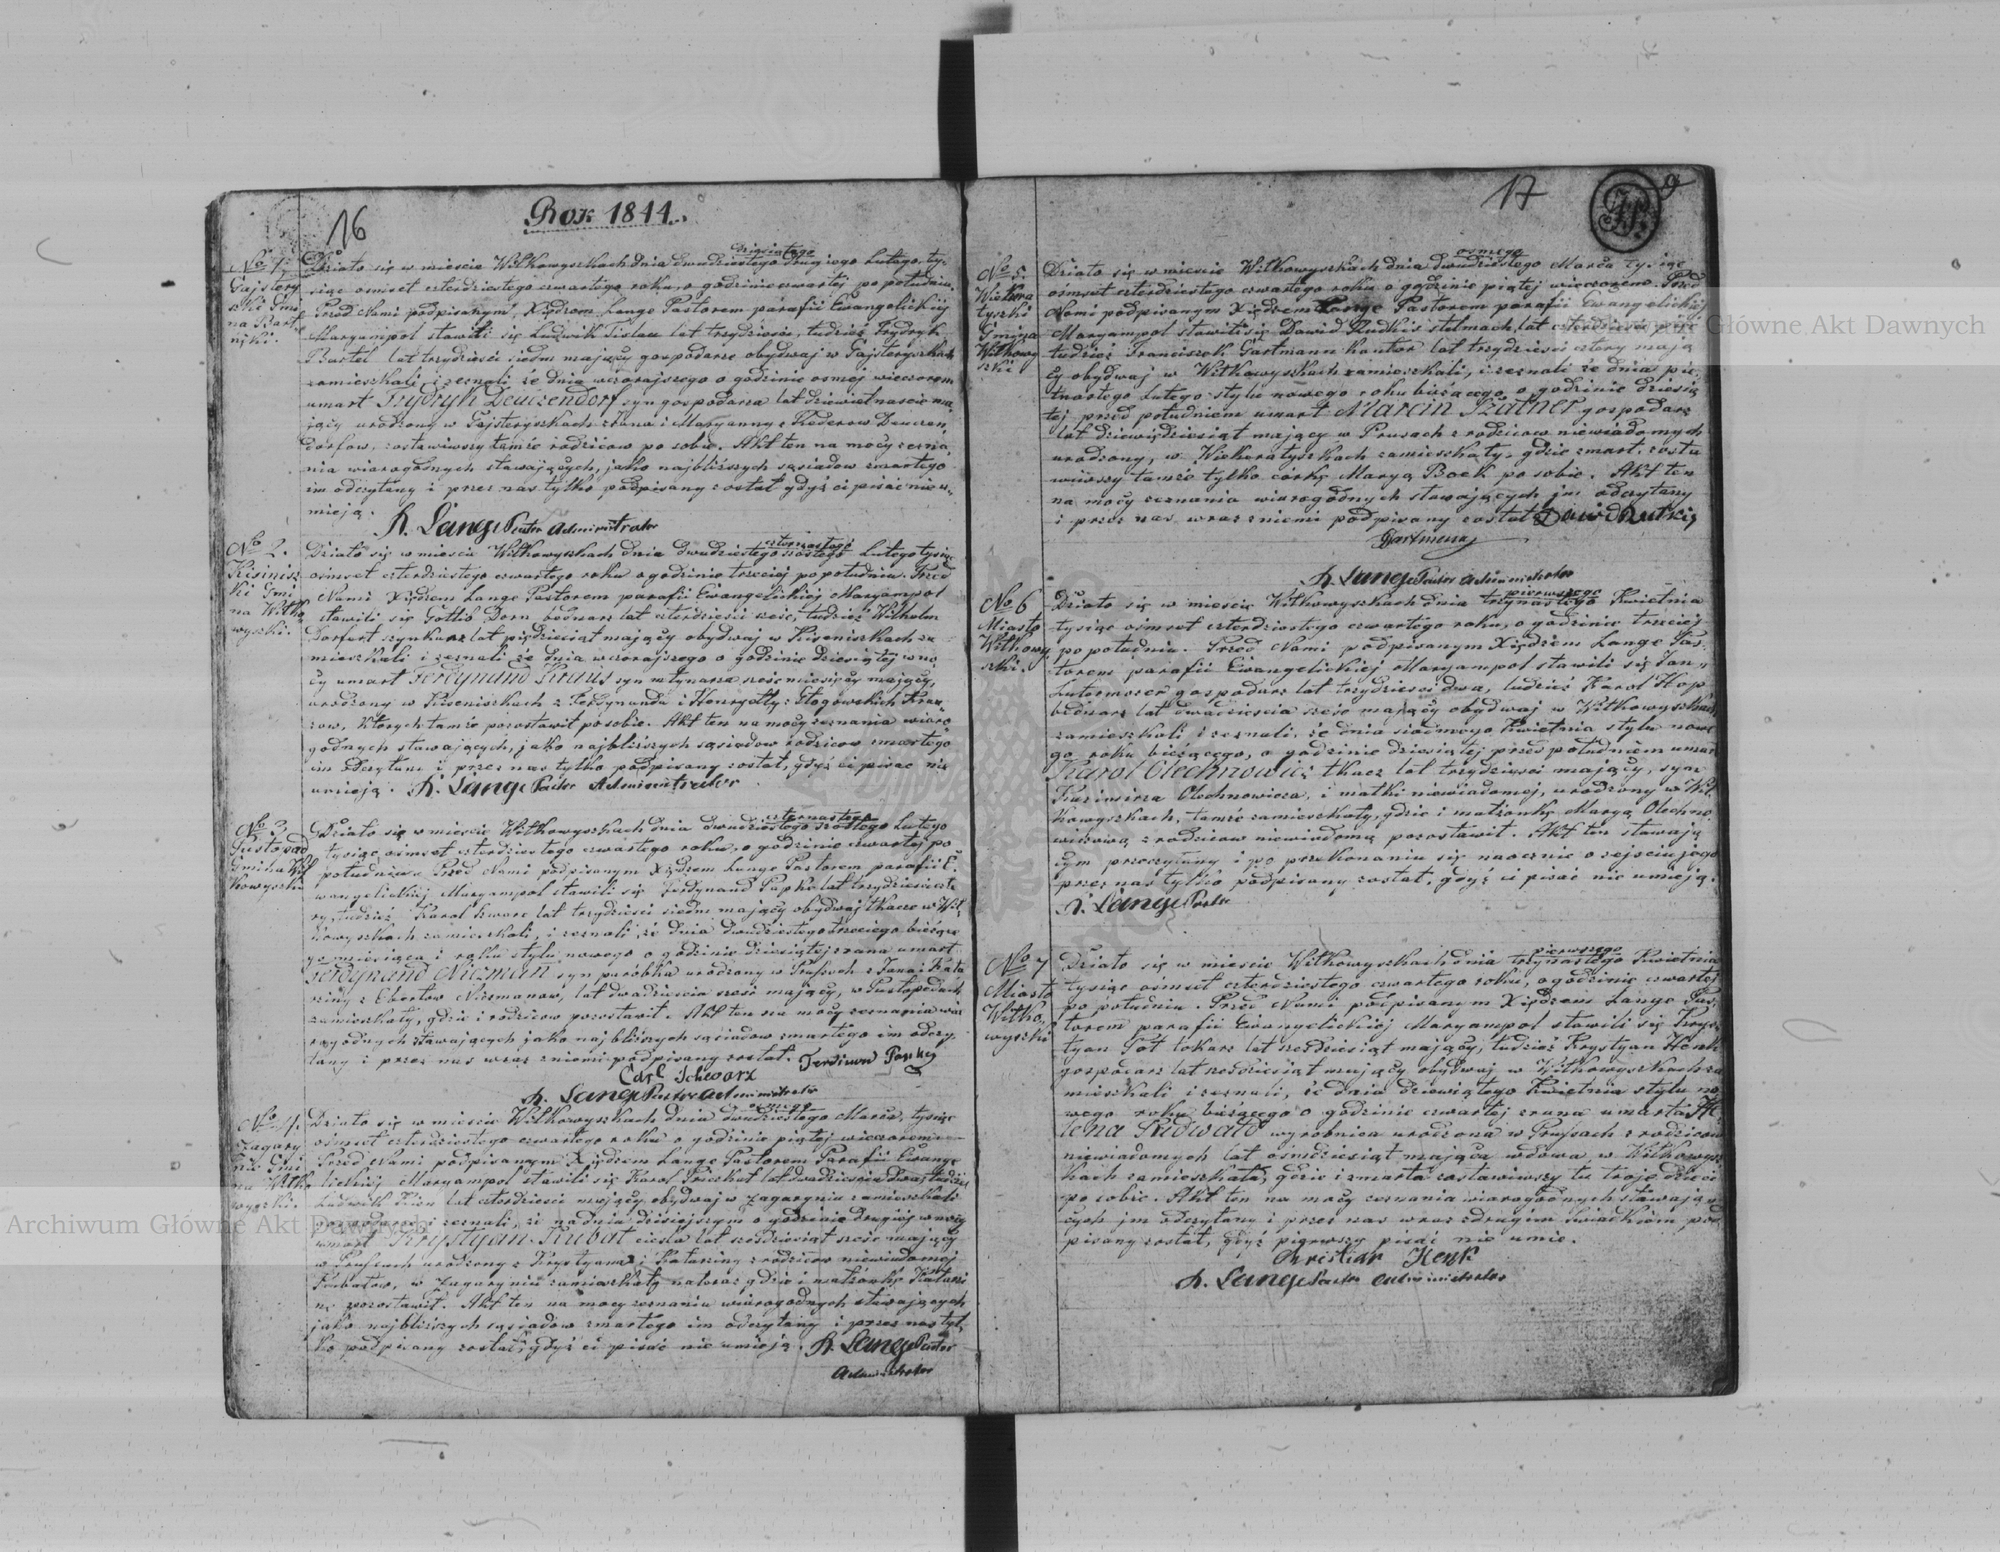 16
Rok 1844.
No 1.
Gajstery
szki Gmi
na Bart
nyki.
dziesiątego
Działo się w mieście Wiłkowyszkach dnia dwudziestego drugiego Lutego, ty,
siąc osmset czterdziestego czwartego roku, o godzinie czwartej po południu.
Przed Nami podpisanym, Xiędzem Lange Pastorem parafii Ewangelickiej
Maryampol stawili się Ludwik Tislau lat trzydzieści, tudzież Frydryk
Bartel lat trzydzieści siedm mający gospodarze obydwaj w Gajsteryszkach
zamieszkali i zeznali, że dnia wczorajszego o godzinie osmej wieczorem
umarł Frydryk Deuczendorf syn gospodarza lat dziewietnascie ma,
jący urodzony w Gajsteryszkach z Jana i Maryanny z Kederow Deuczen,
dorfow, zostawiwszy tamże rodziców po sobie. Akt ten na mocy zezna,
nia wiarogodnych stawających, jako najbliższych sąsiadow zmarłego
im odczytany i przez nas tylko podpisany został gdyż ci pisać nieu,
mieją.
K. Lange Pastor Administrator
No 2.
Kisinisz
ki Gmi
na Wiłko
wyszki.
czternastego
Działo się w mieście Wiłkowyszkach dnia dwudziestego szostego Lutego tysiąc
osmset czterdziestego czwartego roku o godzinie trzeciej po południu. Przed
Nami Xiędzem Lange Pastorem parafii Ewangelickiej Maryampol
stawili się Gotlib Dorn bednarz lat czterdzieści sześć, tudzież Wilhelm
Dorfert szynkarz lat pięćdziesiąt mający obydwaj w Kiseniszkach za
mieszkali i zeznali że dnia wczorajszego o godzinie dziesiątej w no
cy umarł Ferdynand Kraus syn młynarza sześć miesięcy mający,
urodzony w Kiseniszkach z Ferdynanda i Henryetty z Głogowskich Krau
zow, których tamże pozostawił po sobie. Akt ten na mocy zeznania wiaro
godnych stawających, jako najbliższych sąsiadow rodzicow zmarłego
im odczytany i przez nas tylko podpisany został, gdyż ci pisac nie
umieją. K. Lange Pastor Administrator
No 3
Pustopod
Gmina Wił
kowyszki
czternastego
Działo się w mieście Wiłkowyszkach dnia dwudziestego szostego Lutego
tysiąc osmset czterdziestego czwartego roku, o godzinie czwartej po
południu. Przed Nami podpisanym Xiędzem Lange Pastorem parafii E,
wangelickiej Maryampol stawili się Ferdynand Papke lat trzydzieści czte
ry, tudzież Karol Szwarc lat trzydzieści siedm mający obydwaj tkacze w Wił,
kowyszkach zamieszkali, i zeznali, że dnia dwudziestego trzeciego bieżące
go miesiąca i roku stylu nowego o godzinie dziesiątej z rana umarł
Ferdynand Nieman syn parobka urodzony w Prusach z Jana i Kata
rzyny z Ebertow Niemanow, lat dwadzieścia sześć mający, w Pustopodach
zamieszkały, gdzie i rodzicow pozostawił. Akt ten na mocy zeznania wia
rogodnych stawających jako najbliższych sąsiadow zmarłego im odczy,
tany i przez nas wraz z niemi podpisany został.
Carl Schwarz
K. Lange Pastor Administrator
No 4.
Zagary
nie Gmi
na Wiłko
wyszki.
osmego
Działo się w mieście Wiłkowyszkach dnia dwudziestego Marca, tysiąc
osmset czterdziestego czwartego roku o godzinie piątej wieczorem
Przed Nami podpisanym Xiędzem Lange Pastorem Parafii Ewange
lickiej Maryampol stawili się Karol lat dwadzieścia dwa, tudzież
Ludwik lat czterdzieści mający obydwaj w Zagaryniu zamieszkali
i zeznali, że na dniu dzisiejszym o godzinie drugiej w nocy
umarł Krystyan Kubat cieśla lat sześdziesiąt sześć mający
w Prusach urodzony z Krystyana i Katarzyny z rodzicow niewiadomej
Kubatow, w Zagaryniu zamieszkały gdzie i małżonkę Katarzy
nę pozostawił. Akt ten na mocy zeznania wiarogodnych stawających
jako najbliższych sąsiadow zmarłego im odczytany i przez nas tyl,
ko podpisany został, gdyż ci pisać nie umieją. K. Lange Pastor
Administrator
17
9
No 5.
Wieksza
tyszki
Gmina
Wiłkowy
szki
osmego
Działo się w mieście Wiłkowyszkach dnia dwudziestego Marca tysiąc
ośmset czterdziestego czwartego roku o godzinie piątej wieczorem. Przed
Nami podpisanym Xiędzem Lange Pastorem parafii Ewangelickiej
Maryampol stawili się Dawid Rudkis stelmach lat czterdzieści
tudzież Franciszek Gartmann Kantor lat trzydzieści cztery mają
cy obydwaj w Wiłkowyszkach zamieszkali, i zeznali że dnia pię
tnastego Lutego stylu nowego roku bieżącego o godzinie dziesią
tej przed południem umarł Marcin Szatner gospodarz
lat dziewiędziesiąt mający w Prusach z rodzicow niewiadomych
urodzony, w zamieszkały, gdzie zmarł, zosta
wiwszy tamże tylko corkę Maryą Boek po sobie. Akt ten
na mocy zeznania wiarogodnych stawających im odczytany
i przez nas wraz z niemi podpisany został Dawid Rutkis
Gartmann
K. Lange Pastor Administrator
No 6
Miasto
Wiłkowy,
szki.
pierwszego
Działo się w mieście Wiłkowyszkach dnia trzynastego Kwietnia
tysiąc ośmset czterdziestego czwartego roku, o godzinie trzeciej
po południu. Przed Nami podpisanym Xiędzem Lange Pas,
torem parafii Ewangelickiej Maryampol stawili się Jan
Lutermoser gospodarz lat trzydzieści dwa, tudzież Karol Hop
bednarz lat dwadzieścia sześć mający obydwaj w Wiłkowyszkach
zamieszkali i zeznali, że dnia siodmego Kwietnia stylu nowe
go roku bieżącego, o godzinie dziesiątej przed południem umarł
Karol Olechnowicz tkacz lat trzydzieści mający, syn
Kazimierza Olechnowicza, i matki niewiadomej, urodzony w Wił
kowyszkach, tamże zamieszkały, gdzie i małżonkę Maryą Olechno
wiczową z rodzicow niewiadomą pozostawił. Akt ten stawają
cym przeczytany i po przekonaniu się naocznie o zejściu jego
przez nas tylko podpisany został, gdyż ci pisać nie umieją.
K. Lange Pastor
No 7
Miasto
Wiłko,
wyszki
pierwszego
Działo się w mieście Wiłkowyszkach dnia trzynastego Kwietnia
tysiąc ośmset czterdziestego czwartego roku, o godzinie czwartej
po południu. Przed Nami podpisanym Xiędzem Lange Pas,
torem parafii Ewangelickiej Maryampol stawili się Krys,
tyan Tot tokarz lat sześdziesiąt mający, tudzież Krystyan Henk
gospodarz lat sześdziesiąt mający obydwaj w Wiłkowyszkach za
mieszkali i zeznali, że dnia dziewiątego Kwietnia stylu no
wego roku bieżącego o godzinie czwartej z rana umarła He
lena Ludwald wyrobnica urodzona w Prusach z rodzicow
niewiadomych lat ośmdziesiąt mająca wdowa w Wiłkowysz
kach zamieszkała, gdzie i zmarła zostawiwszy tu troje dzieci
po sobie. Akt ten na mocy zeznania wiarogodnych stawają,
cych im odczytany i przez nas wraz z drugim świadkiem pod
pisany został, gdyż pierwszy pisać nie umie.
Christian Henk
K. Lange Pastor Administrator
Archiwum Główne Akt Dawnych
Archiwum Główne Akt Dawnych